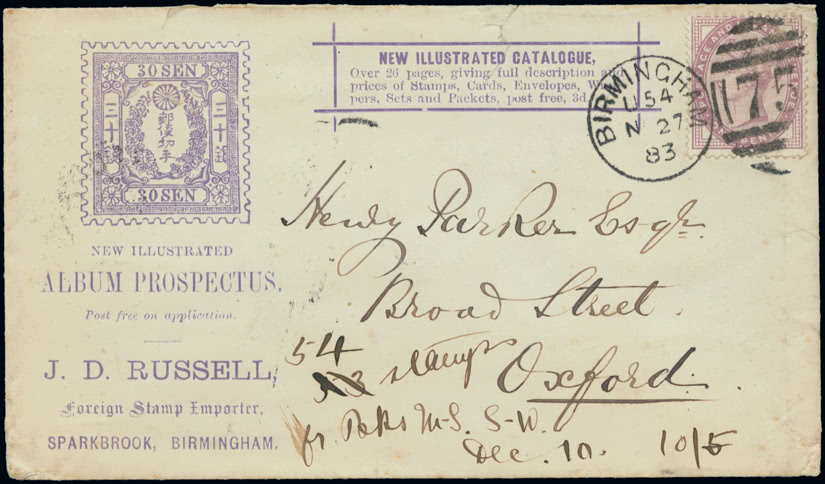 30 SEN
郵便切手
三十銭
三十銭
30 SEN
NEW ILLUSTRATED
ALBUM PROSPECTUS.
Post free on application.
J. D. RUSSELL,
Foreign Stamp Importer,
SPARKBROOK, BIRMINGHAM.
NEW ILLUSTRATED CATALOGUE,
Over 26 pages, giving full description
prices of Stamps, Cards, Envelopes,
pers, Sets and Packets, post free, 3d
BIRMINGHAM
U 54
N 27
83
75
Parker Esqr.
Broad Street.
Oxford.
54
53 stamps
fr. Pkts M-S. S-W.
Dec. 10. 10/5